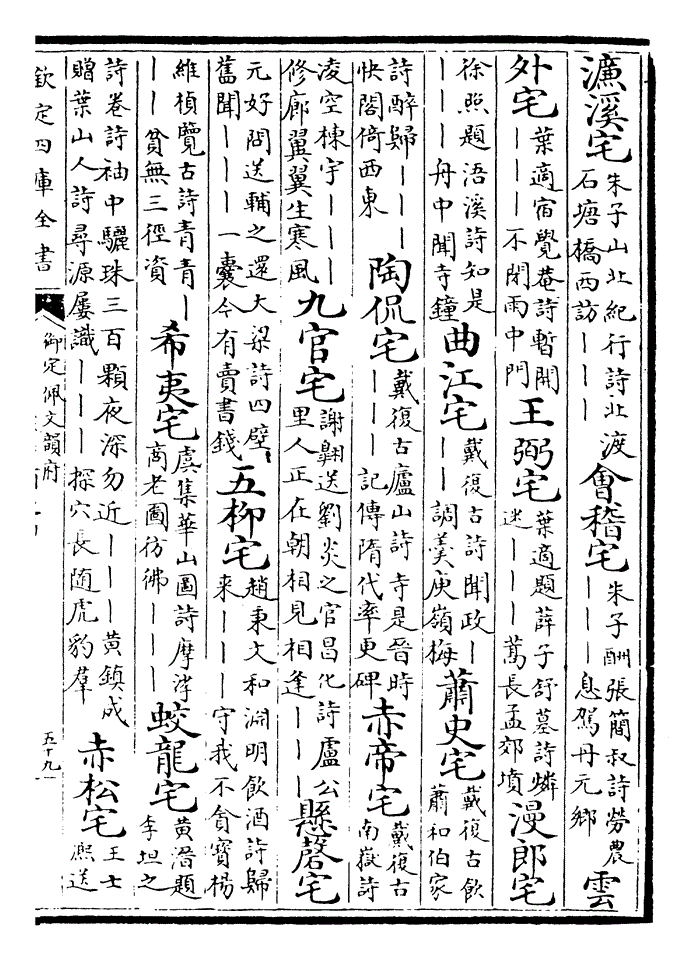 濂溪宅
朱子山北紀行詩北渡
石塘橋西訪｜｜｜
會稽宅
朱子酬張簡叔詩勞農
｜｜｜息駕丹元鄉
雲
外宅
葉適宿覺菴詩暫開
｜｜｜不閉雨中門
王弼宅
葉適題薛子舒墓詩燐
迷｜｜｜蒿長孟郊墳
漫郎宅
徐照題浯溪詩知是
｜｜｜舟中聞寺鐘
曲江宅
戴復古詩聞政｜
｜｜調羮庾嶺梅
蕭史宅
戴復古飲
蕭和伯家
詩醉歸｜｜｜
快閣倚西東
陶侃宅
戴復古廬山詩寺是晉時
｜｜｜記傳隋代率更碑
赤帝宅
戴復古
南嶽詩
凌空棟宇｜｜｜
修廊翼翼生寒風
九官宅
謝翺送劉炎之官昌化詩盧公
里人正在朝相見相逢｜｜｜
懸磬宅
元好問送輔之還大梁詩四壁
舊聞｜｜｜一囊今有賣書錢
五柳宅
趙秉文和淵明飲酒詩歸
來｜｜｜守我不貪寶楊
維楨覽古詩青青｜
｜｜貧無三徑資
希夷宅
虞集華山圖詩摩滓
商老圖彷彿｜｜｜
蛟龍宅
黃溍題
李坦之
詩卷詩袖中驪珠三百顆夜深勿近｜｜｜黃鎮成
贈葉山人詩尋源屢識｜｜｜探穴長隨虎豹羣
赤松宅
王士
熙送
欽定四庫全書
御定佩文韻府
五十九